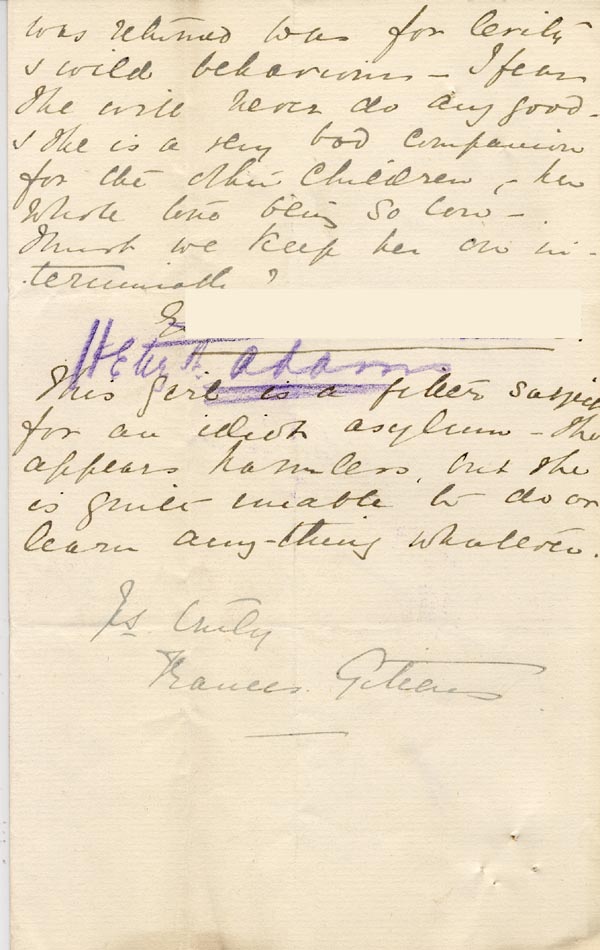 was returned was for levity
& wild behaviour – I fear
she will never do any good –
& she is a very bad companion
for the other children, – her
whole tone being so low –
Must we keep her on in-
terminably?
Adams
This girl is a fitter subject
for an idiot asylum – She
appears harmless, but she
is quite unable to do or
learn any-thing whatever.
Yrs truly
Frances